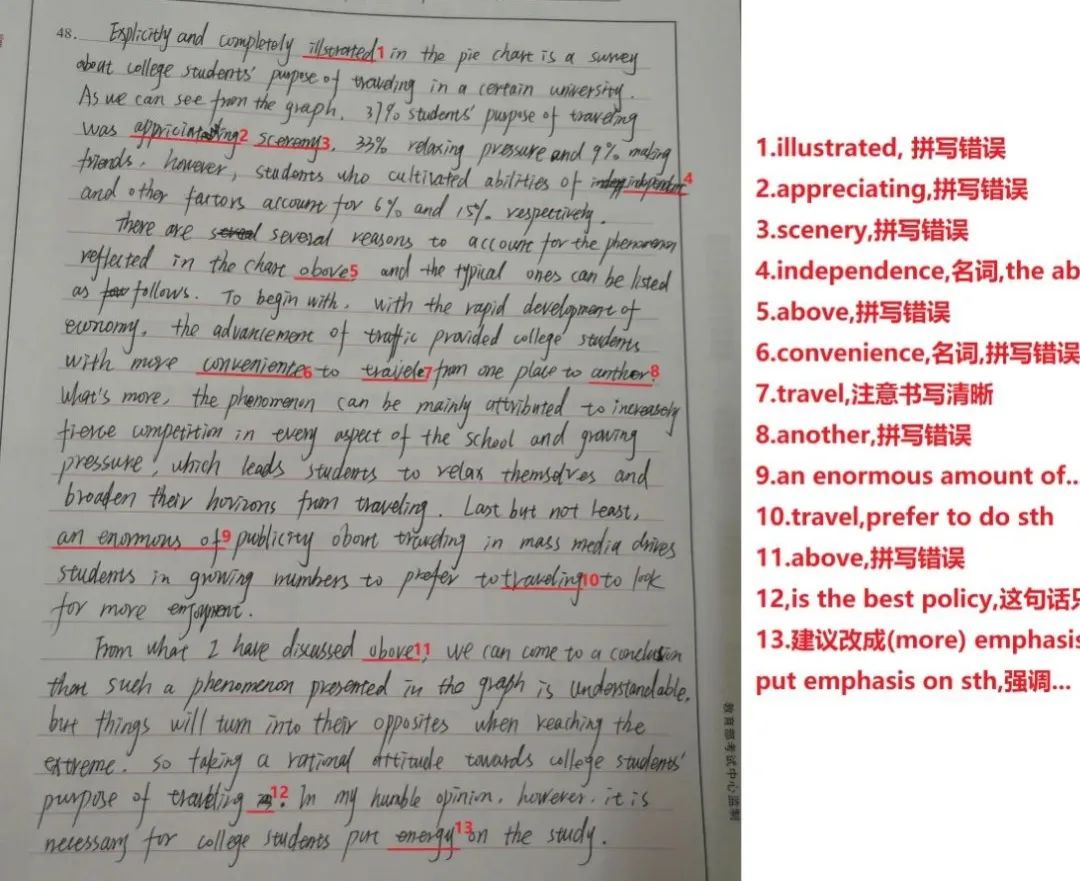 48. Explicitly and completely illstrated1 in the pie chart is a survey
about college students' purpose of traveling in a certain university.
As we can see from the graph, 37% students' purpose of traveling
was 2 sceremy3, 33% relaxing pressure and 9% making
friends, however, students who cultivated abilities of independent4
and other factors account for 6% and 15%. respectively.
There are several reasons to account for the phenomenon
reflected in the chart obove5 and the typical ones can be listed
as follows. To begin with, with the rapid development of
economy, the advancement of traffic provided college students
with more convenientce6 to travele7 from one place to anther.8
What's more, the phenomenon can be mainly attributed to increasely
fierce competition in every aspect of the school and growing
pressure, which leads students to relax themselves and
broaden their horizons from traveling. Last but not least,
an enormous of9 publicity about traveling in mass media drives
students in growing numbers to prefer to traveling10 to look
for more enjoyment.
From what I have discussed obove11, we can come to a conclusion
that such a phenomenon presented in the graph is understandable,
but things will turn into their opposites when reaching the
extreme. So taking a rational attitude towards college students'
purpose of traveling 12. In my humble opinion, however, it is
necessary for college students put energy13 on the study.
教育部考试中心监制
1.illustrated, 拼写错误
2.appreciating,拼写错误
3.scenery,拼写错误
4.independence,名词,the ab
5.above,拼写错误
6.convenience,名词,拼写错误
7.travel,注意书写清晰
8.another,拼写错误
9.an enormous amount of..
10.travel,prefer to do sth
11.above,拼写错误
12,is the best policy,这句话只
13.建议改成(more) emphasis
put emphasis on sth,强调...